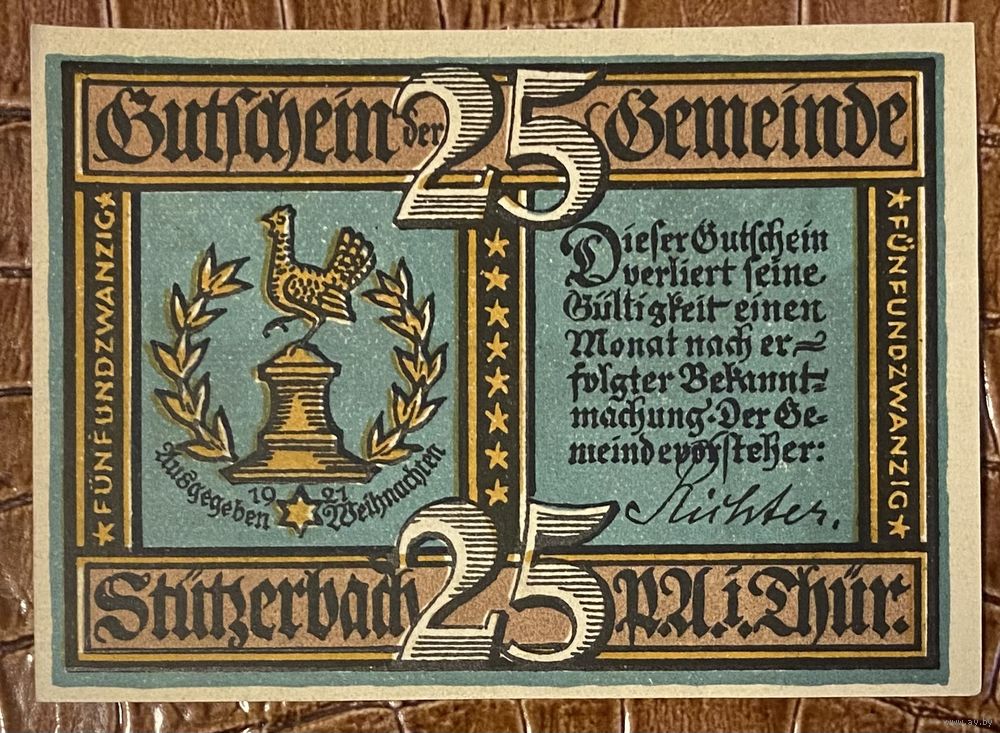 Gutschein der 25 Gemeinde
★FÜNFUNDZWANZIG★
Ausgegeben 1921 Weihnachten
Dieser Gutschein
verliert seine
Gültigkeit einen
Monat nach er=
folgter Bekannt=
machung. Der Ge=
meindevorsteher:
Richter.
★FÜNFUNDZWANZIG★
Stützerbach 25 P.A.i.Thür.
www.av.by